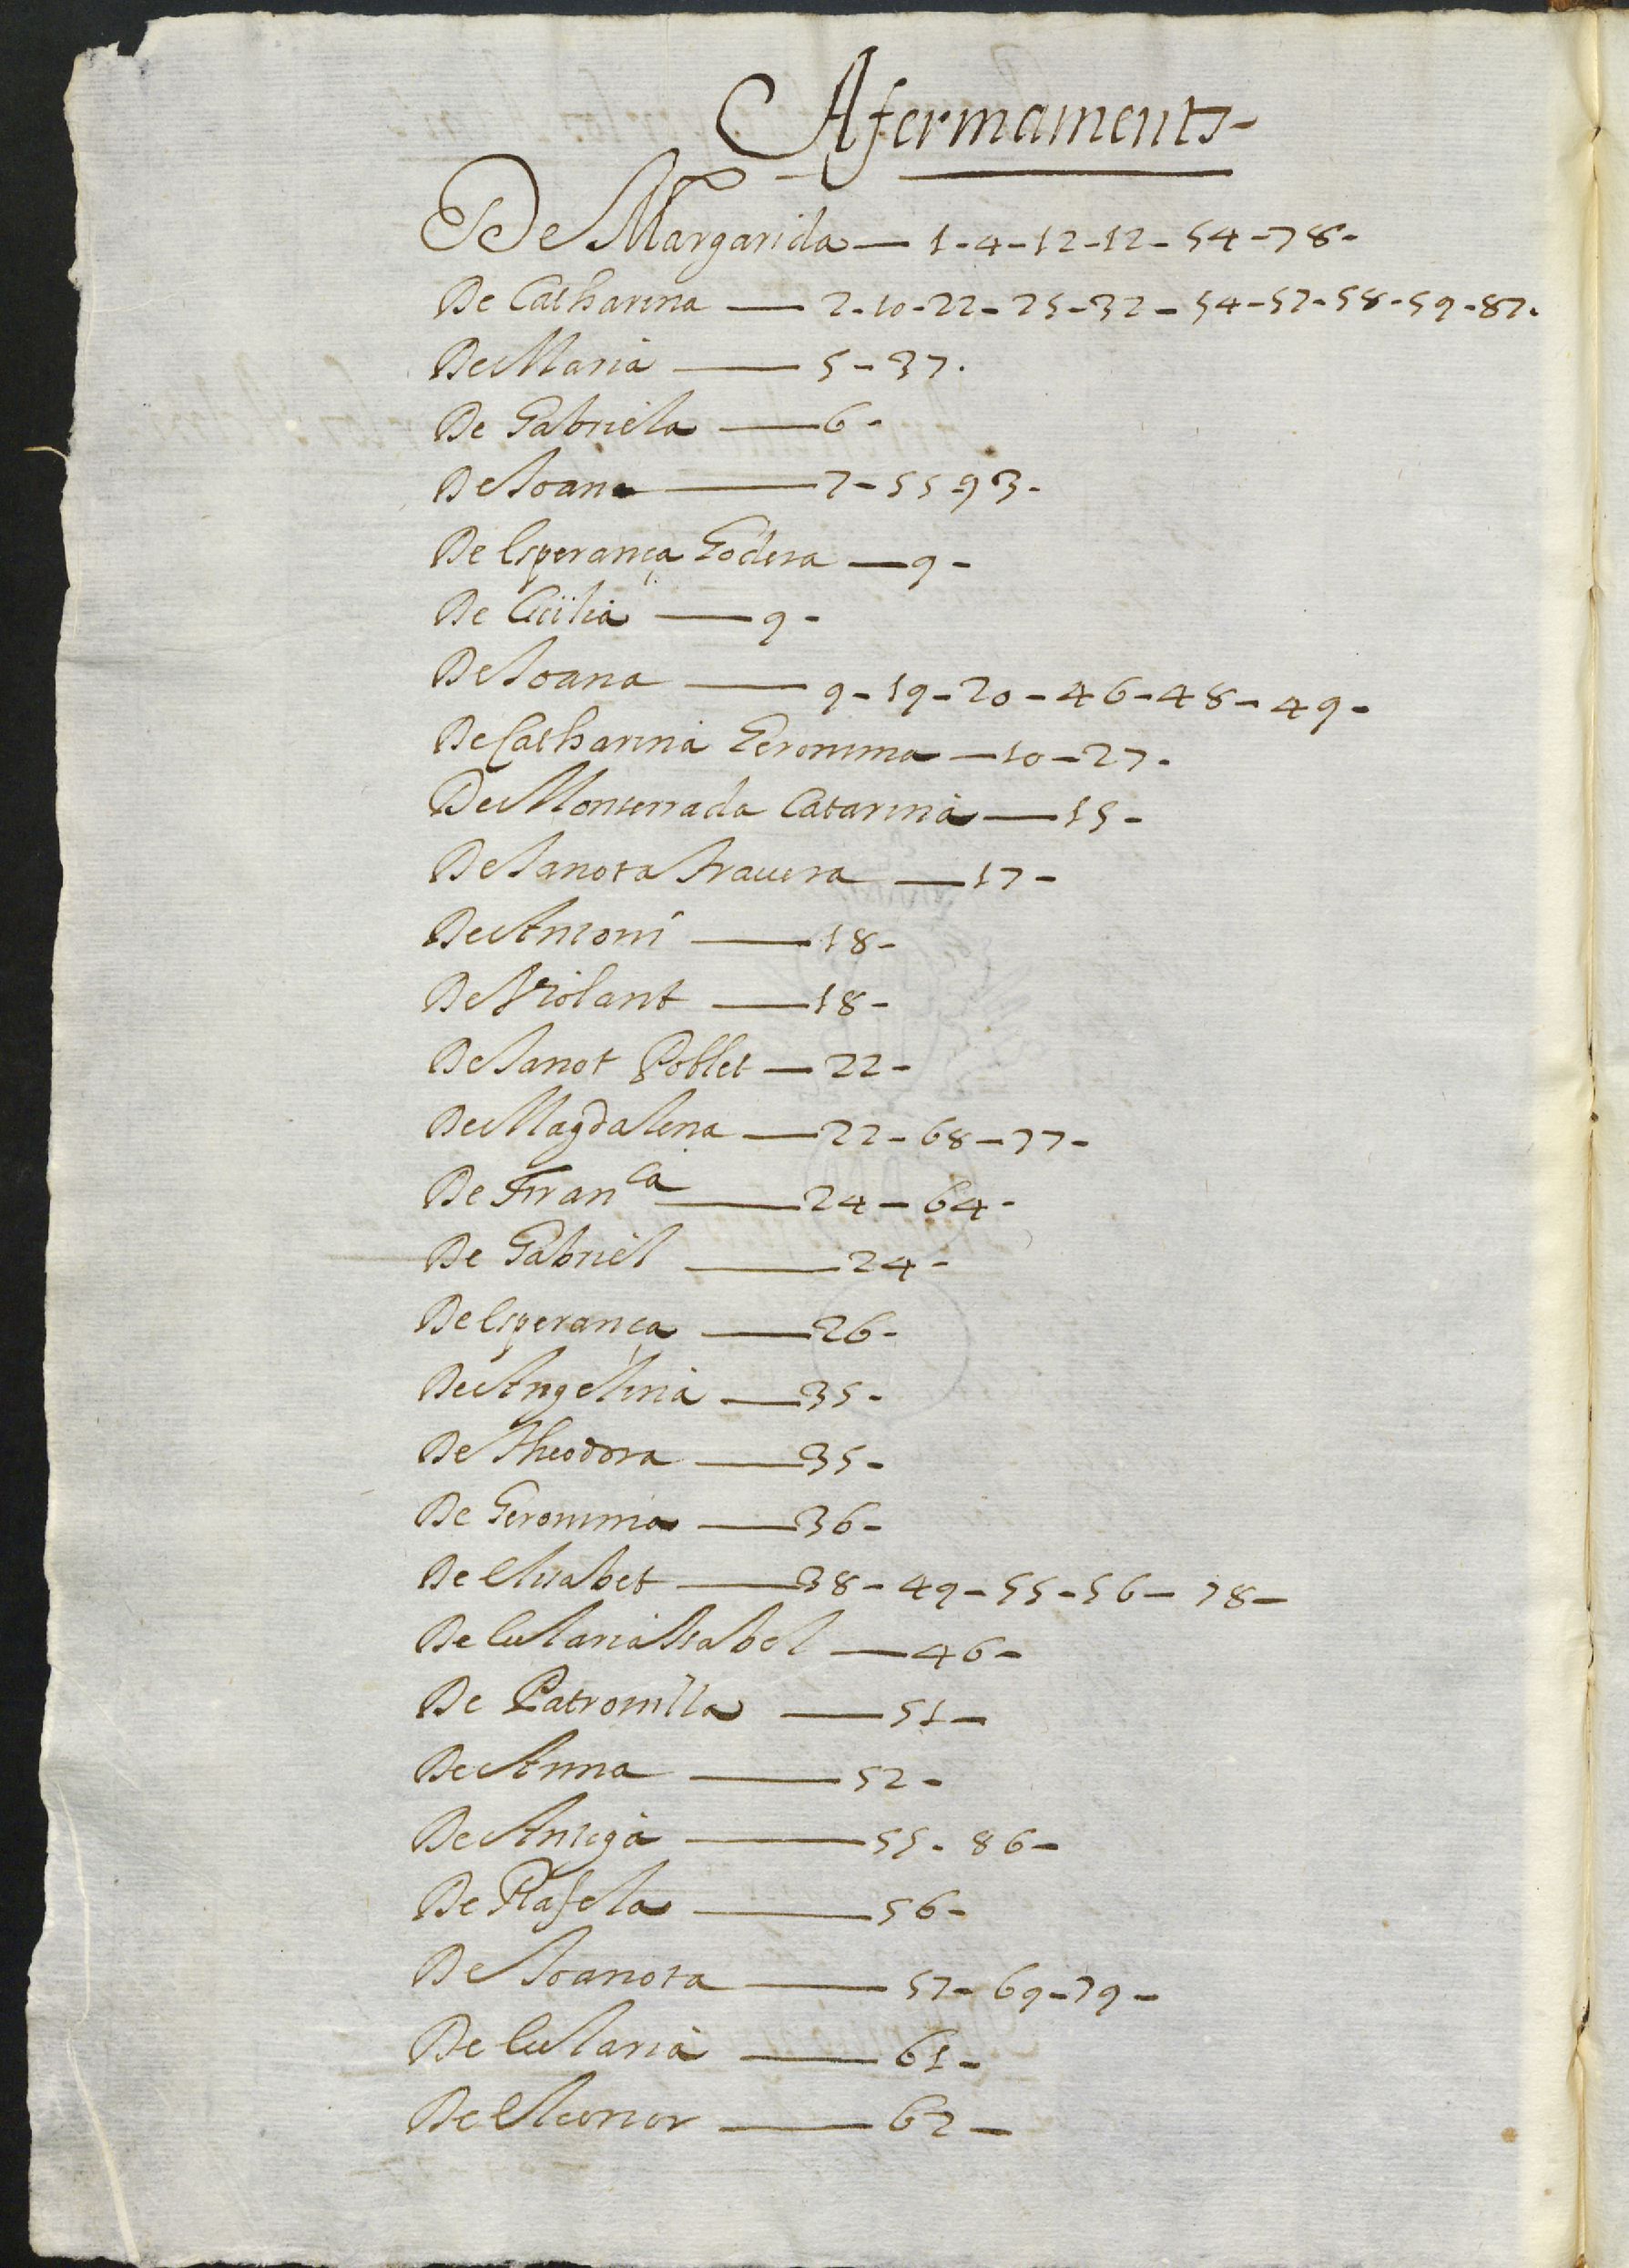 Afermaments-
De Margarida — 1-4-12-12-54-78-
De Catharina — 2-10-22-25-32-54-57-58-59-87.
De Maria — 5-37.
De Gabriela — 6-
De Joana — 7-55-93-
De Esperança Godera — 9-
De Cicilia — 9-
De Joana — 9-19-20-46-48-49-
De Catharina Geronima — 10-27.
De Monserrada Catarina — 15-
De Janota Travera — 17-
De Antoni — 18-
De Violant — 18-
De Janot Poblet — 22-
De Magdalena — 22-68-77-
De Franca — 24-64-
De Gabriel — 24-
De Esperança — 26-
De Angelina — 35-
De Theodora — 35-
De Geronima — 36-
De Elisabet — 38-49-55-56-78-
De Eularia Isabel — 46-
De Patronilla — 51-
De Anna — 52-
De Antiga — 55-86-
De Rafela — 56-
De Joanota — 57-69-79-
De Eularia — 61-
De Eleonor — 62-